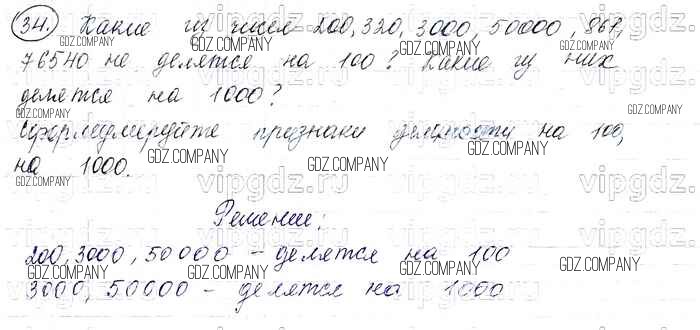 34. Какие из чисел 200, 320, 3000, 50000, 867,
76540 не делятся на 100? Какие из них
делятся на 1000?
Сформулируйте признаки делимости на 100,
на 1000.
Решение:
200, 3000, 50000 – делятся на 100
3000, 50000 – делятся на 1000
GDZ.COMPANY
vipgdz.ru